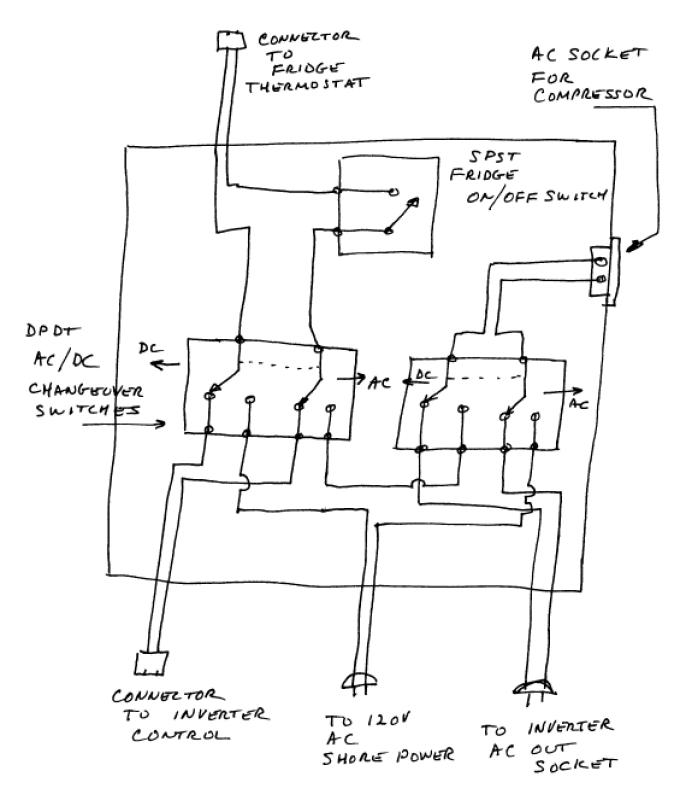 CONNECTOR
TO
FRIDGE
THERMOSTAT
AC SOCKET
FOR
COMPRESSOR
SPST
FRIDGE
ON/OFF SWITCH
DPDT
AC/DC
CHANGEOVER
SWITCHES
DC
AC
DC
AC
CONNECTOR
TO INVERTER
CONTROL
TO 120V
AC
SHORE POWER
TO INVERTER
AC OUT
SOCKET